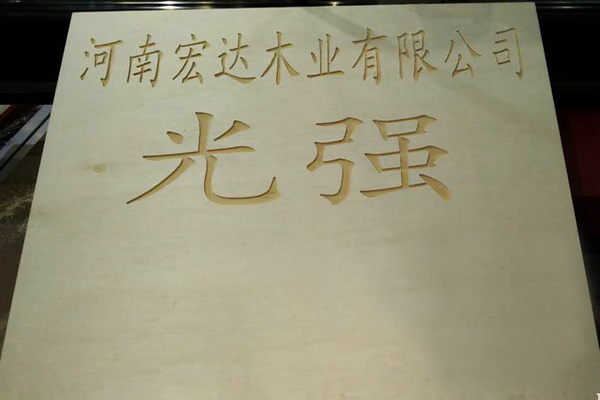 河南宏达木业有限公司
光强